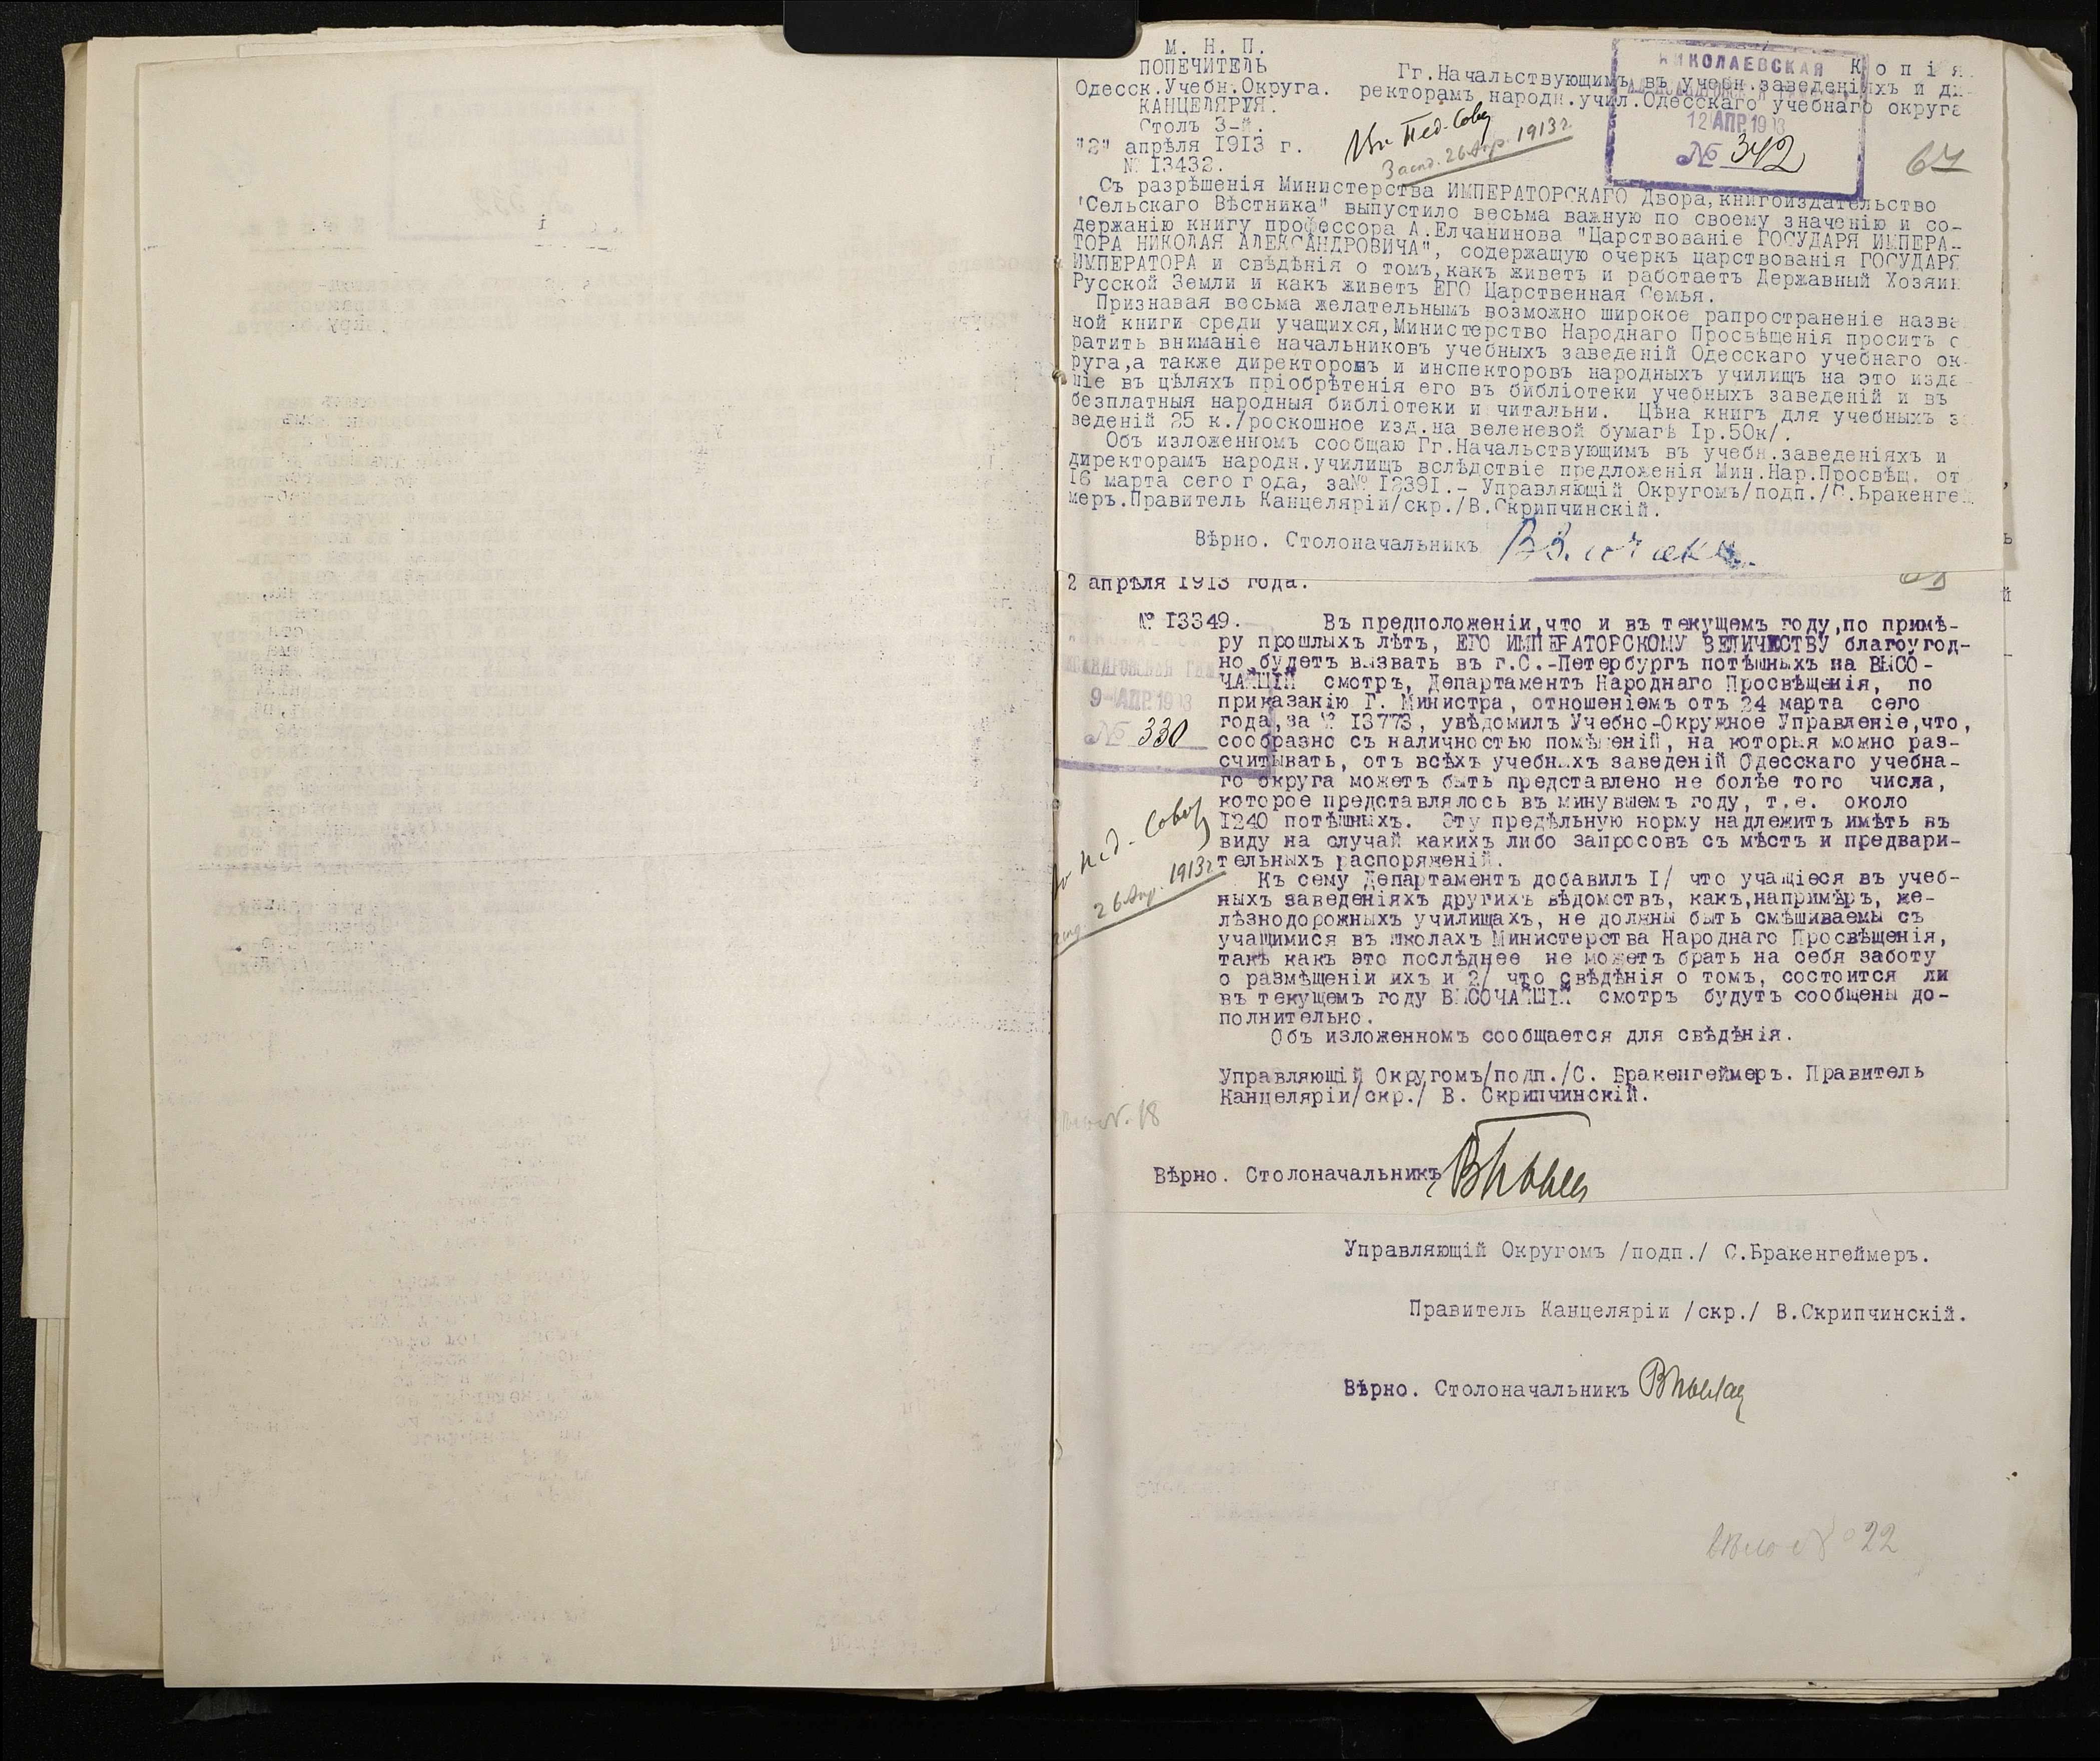 М. Н. П.
ПОПЕЧИТЕЛЬ
Одесск.Учебн.Округа.
КАНЦЕЛЯРІЯ.
Столъ 3-й.
"2" апрѣля 1913 г.
№ 13432.
Копія
Гг.Начальствующимъ въ учебн.заведеніяхъ и ди-
ректорамъ народн.учил.Одесскаго учебнаго округа
НИКОЛАЕВСКАЯ
12 АПР 1913
№ 342
Въ Пед. Совѣ
Засѣд. 26 Апр. 1913 г
67
Съ разрѣшенія Министерства ИМПЕРАТОРСКАГО Двора,книгоиздательство
"Сельскаго Вѣстника" выпустило весьма важную по своему значенію и со-
держанію книгу профессора А.Елчанинова "Царствованіе ГОСУДАРЯ ИМПЕРА-
ТОРА НИКОЛАЯ АЛЕКСАНДРОВИЧА", содержащую очеркъ царствованія ГОСУДАРЯ
ИМПЕРАТОРА и свѣдѣнія о томъ,какъ живетъ и работаетъ Державный Хозяин
Русской Земли и какъ живетъ ЕГО Царственная Семья.
Признавая весьма желательнымъ возможно широкое рапространеніе назва
ной книги среди учащихся,Министерство Народнаго Просвѣщенія проситъ о
ратить вниманіе начальниковъ учебныхъ заведеній Одесскаго учебнаго ок-
руга,а также директоровъ и инспекторовъ народныхъ училищъ на это изда-
ніе въ цѣляхъ пріобрѣтенія его въ библіотеки учебныхъ заведеній и въ
безплатныя народныя библіотеки и читальни. Цѣна книгъ для учебныхъ за
веденій 25 к./роскошное изд.на веленевой бумагѣ Iр.50к/.
Объ изложенномъ сообщаю Гг.Начальствующимъ въ учебн.заведеніяхъ и
директорамъ народн.училищъ вслѣдствіе предложенія Мин.Нар.Просвѣщ. от
16 марта сего года, за№ 12391.- Управляющій Округомъ/подп./С.Бракенге
меръ.Правитель Канцеляріи/скр./В.Скрипчинскій.
Вѣрно. Столоначальникъ
2 апрѣля 1913 года.
№ 13349.
9 АПР 1913
№ 330
Пед. Совѣ
26 Апр. 1913 г
Въ предположеніи,что и въ текущемъ году,по примѣ-
ру прошлыхъ лѣтъ, ЕГО ИМПЕРАТОРСКОМУ ВЕЛИЧЕСТВУ благоугод-
но будетъ вызвать въ г.С.-Петербургъ потѣшныхъ на ВЫСО-
ЧАЙШІЙ смотръ, Департаментъ Народнаго Просвѣщенія, по
приказанію Г. Министра, отношеніемъ отъ 24 марта сего
года,за № 13773, увѣдомилъ Учебно-Окружное Управленіе,что,
сообразно съ наличностью помѣщеній, на которыя можно раз-
считывать, отъ всѣхъ учебныхъ заведеній Одесскаго учебна-
го округа можетъ быть представлено не болѣе того числа,
которое представлялось въ минувшемъ году, т.е. около
1240 потѣшныхъ. Эту предѣльную норму надлежитъ имѣть въ
виду на случай какихъ либо запросовъ съ мѣстъ и предвари-
тельныхъ распоряженій.
Къ сему Департаментъ добавилъ I/ что учащіеся въ учеб-
ныхъ заведеніяхъ другихъ вѣдомствъ, какъ,напримѣръ, же-
лѣзнодорожныхъ училищахъ, не должны быть смѣшиваемы съ
учащимися въ школахъ Министерства Народнаго Просвѣщенія,
такъ какъ это послѣднее не можетъ брать на себя заботу
о размѣщеніи ихъ и 2/ что свѣдѣнія о томъ, состоится ли
въ текущемъ году ВЫСОЧАЙШІЙ смотръ будутъ сообщены до-
полнительно.
Объ изложенномъ сообщается для свѣдѣнія.
Управляющій Округомъ/подп./С. Бракенгеймеръ. Правитель
Канцеляріи/скр./ В. Скрипчинскій.
18
Вѣрно. Столоначальникъ
Управляющій Округомъ /подп./ С.Бракенгеймеръ.
Правитель Канцеляріи /скр./ В.Скрипчинскій.
Вѣрно. Столоначальникъ
22